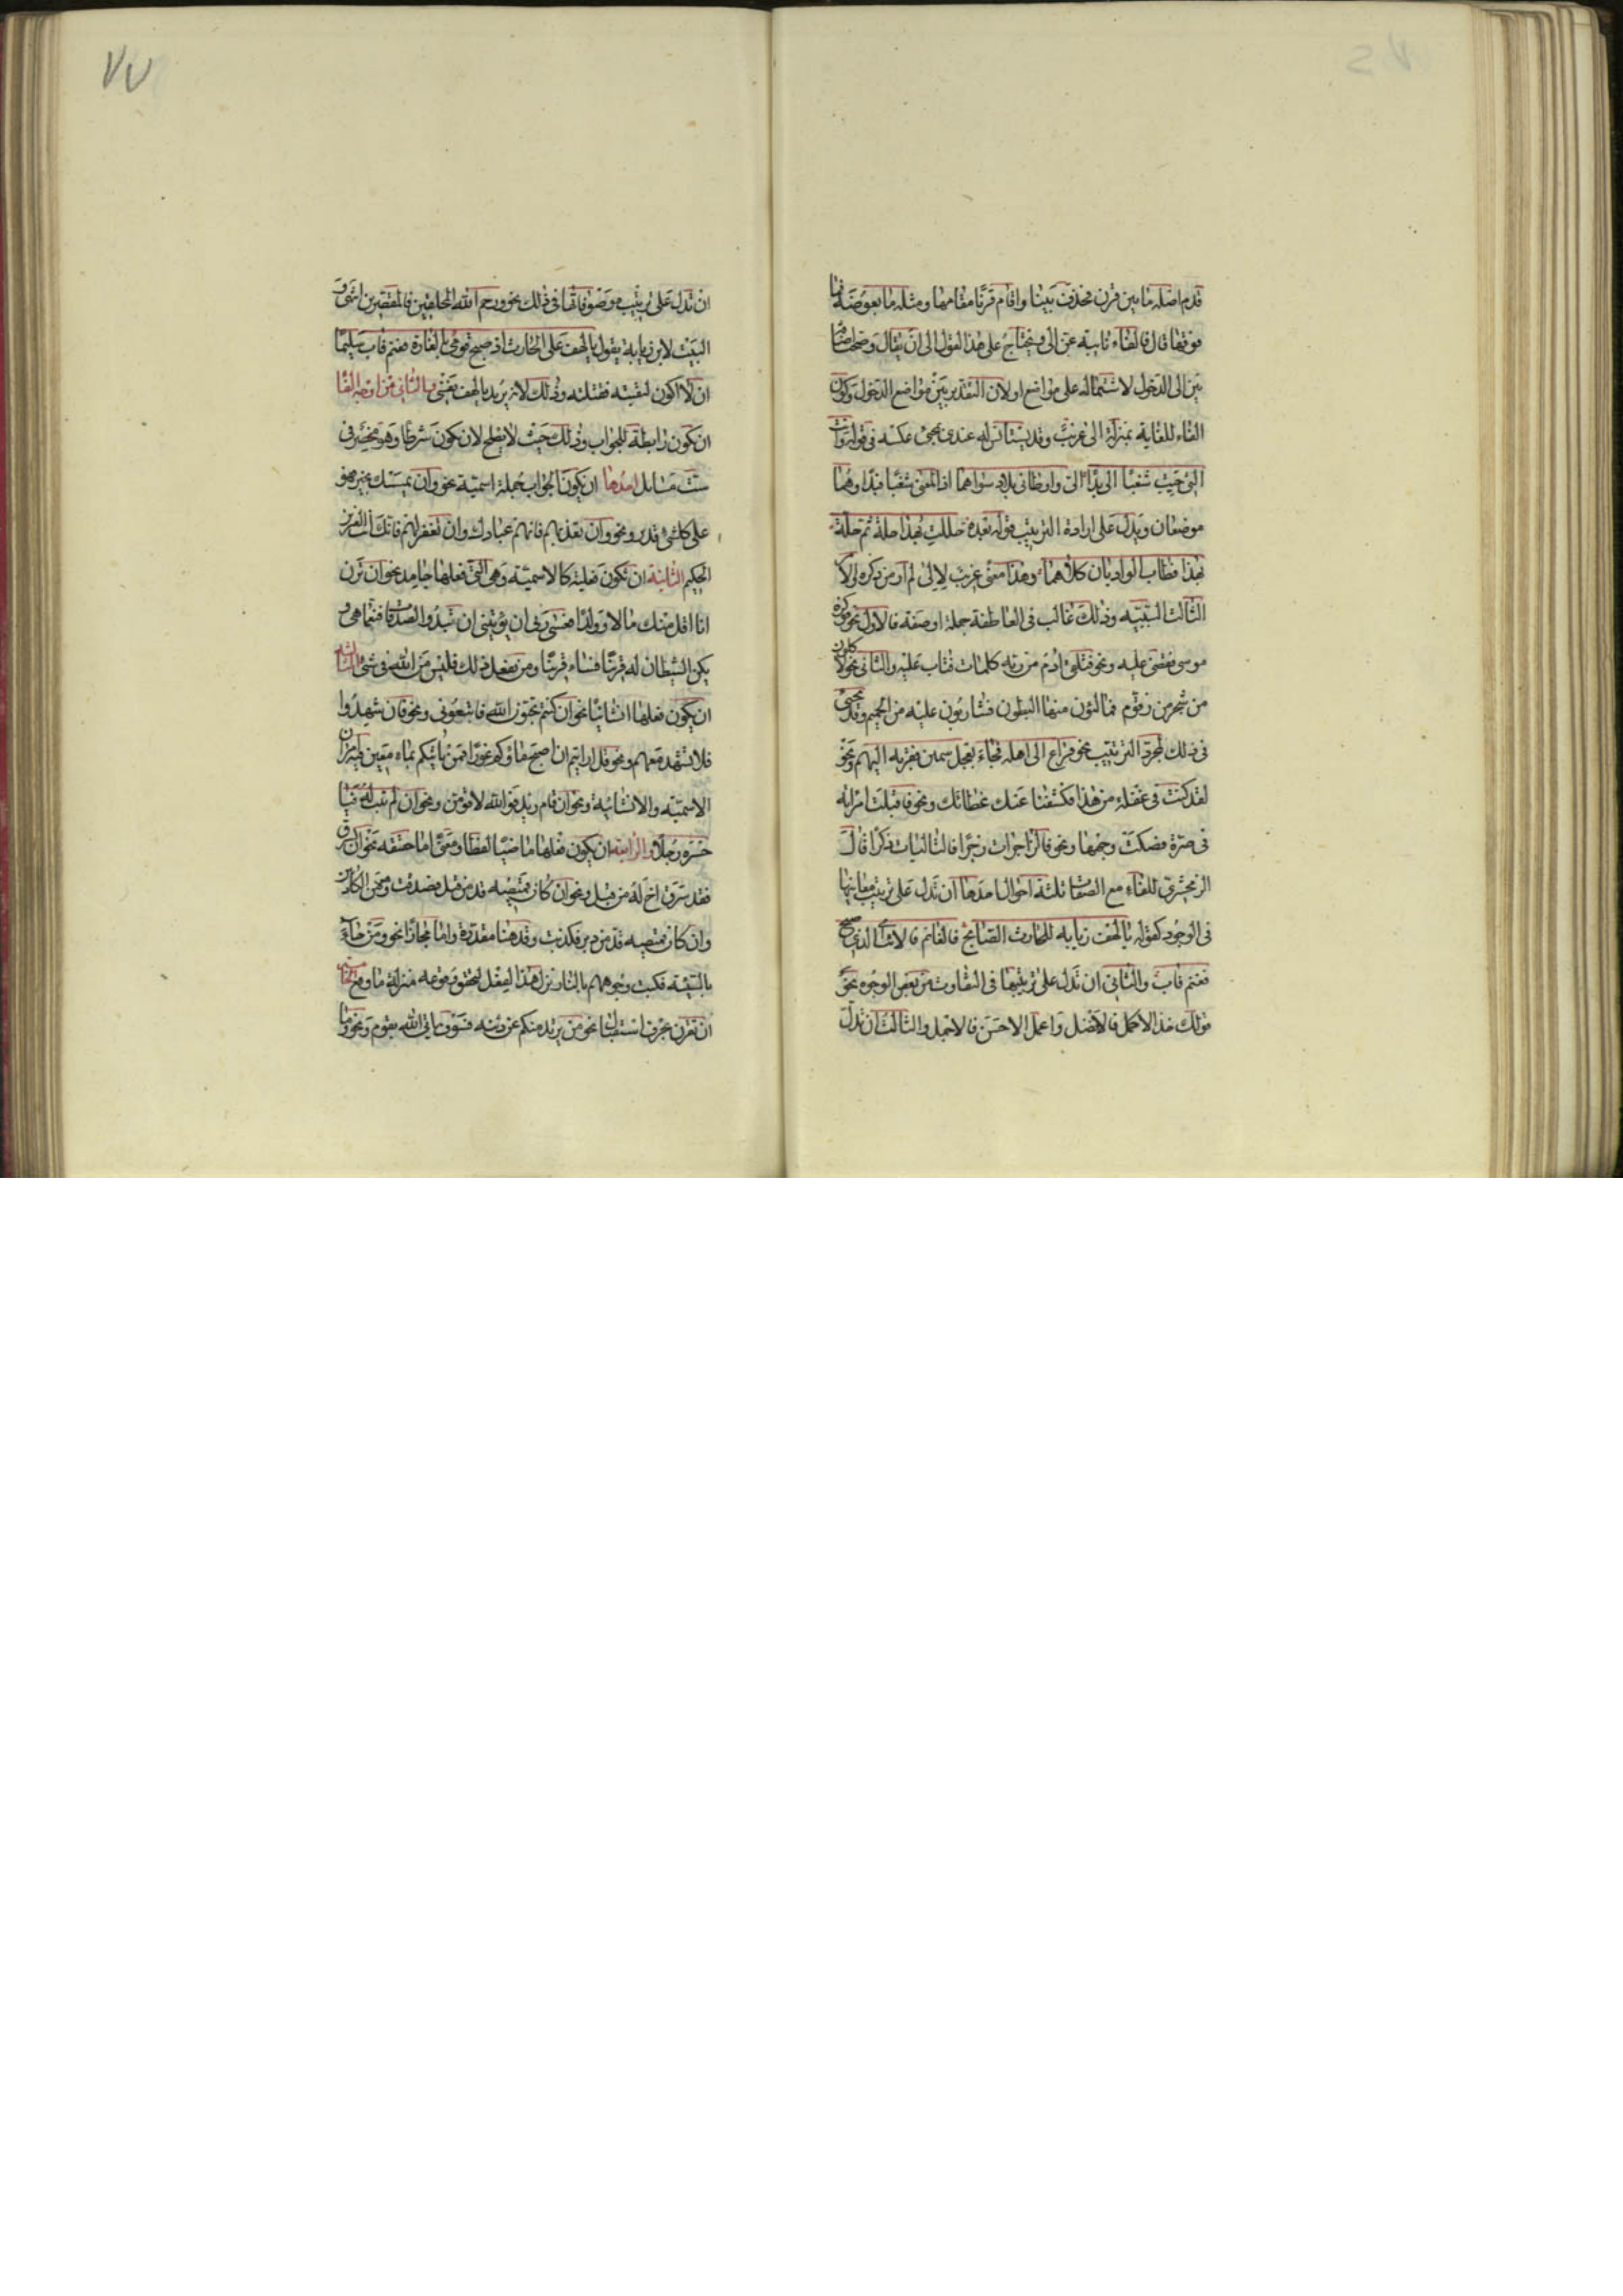 قدم اصله ما بين قرن فحذف بينا واقام قرنا مقامها ومثله ما بعوضة فما
فوقها قال فالفاء نايبة عن الى ويحتاج على هذا القول الى ان يقال وصحت اضافة
بين الى الدخول لاشتماله على مواضع او لان التقدير بين مواضع الدخول وكون
الفاء للغاية بمنزلة الى غريب وقد يستانس له عندى بمجئ عكسه فى قوله وانت
التى حببت شغبا الى بدا الى واوطانى بلاد سواهما اذ المعنى شغبا فبدا وهما
موضعان ويدل على ارادة الترتيب قوله بعده حللت بهذا حلة ثم حلة
بهذا فطاب الواديان كلاهما وهذا معنى غريب لالى لم ار من ذكره والامر
الثالث السببية وذلك غالب فى العاطفة جملة او صفة فالاول نحو فوكزه
موسى فقضى عليه ونحو فتلقى ادم من ربه كلمات فتاب عليه والثانى نحو لاكلون
من شجر من زقوم فمالئون منها البطون فشاربون عليه من الحميم وقد تجئ
فى ذلك لمجرد الترتيب نحو فراغ الى اهله فجاء بعجل سمين فقربه اليهم ونحو
لقد كنت فى غفلة من هذا فكشفنا عنك غطائك ونحو فاقبلت امراته
فى صرة فصكت وجهها ونحو فالزاجرات زجرا فالتاليات ذكرا قال
الزمخشرى للفاء مع الصفات ثلثة احوال احدها ان تدل على ترتيب معانيها
فى الوجود كقوله يا لهف زيابه للحارث الصابح فالغانم فالايب اى الذى صبح
فغنم فاب والثانى ان تدل على ترتيبها فى التفاوت من بعض الوجوه نحو
قولك خذ الاكمل فالافضل واعمل الاحسن فالاجمل والثالث ان تدل
٧٧
ان تدل على ترتيب موصوفاتها فى ذلك نحو رحم الله المحلقين فالمقصرين انتهى و
البيت لابن زيابة يقول يا لهف على الحارث اذ صبح قومى بالغارة فغنم فاب سليما
ان لا اكون لقيته فقتلته وذلك لانه يريد يا لهف نفسى والثانى من اوجه الفا
ان تكون رابطة للجواب وذلك حيث لا يصلح لان يكون شرطا وهو منحصر فى
ست مسايل احدها ان يكون الجواب جملة اسمية نحو وان يمسسك بخير فهو
على كل شئ قدير ونحو وان تعذبهم فانهم عبادك وان تغفر لهم فانك انت العزيز
الحكيم الثانية ان تكون فعلية كالاسمية وهى التى فعلها جامد نحو ان ترن
انا اقل منك مالا وولدا فعسى ربى ان يؤتينى ان تبدوا الصدقات فنعما هى و
يكن الشيطان له قرينا فساء قرينا ومن يفعل ذلك فليس من الله فى شئ الثالثة
ان يكون فعلها انشائيا نحو ان كنتم تحبون الله فاتبعونى ونحو فان شهدوا
فلا تشهد معهم ونحو قل ارايتم ان اصبح ماؤكم غورا فمن ياتيكم بماء معين فيه امران
الاسمية والانشائية ونحو ان قام زيد فوالله لاقومن ونحو ان لم يتب زيد فيا
خسره رجلا والرابعة ان يكون فعلها ماضيا لفظا ومعنى اما حقيقة نحو ان يسرق
فقد سرق اخ له من قبل ونحو ان كان قميصه قد من قبل فصدقت وهو من الكاذبين
وان كان قميصه قد من دبر فكذبت وقد هنا مقدرة واما مجازا نحو ومن جاء
بالسيئة فكبت وجوههم بالنار نزل هذا الفعل لتحقق وقوعه منزلة ما وقع الخامسة
ان تقرن بحرف استقبال نحو من يرتد منكم عن دينه فسوف ياتى الله بقوم ونحو وما